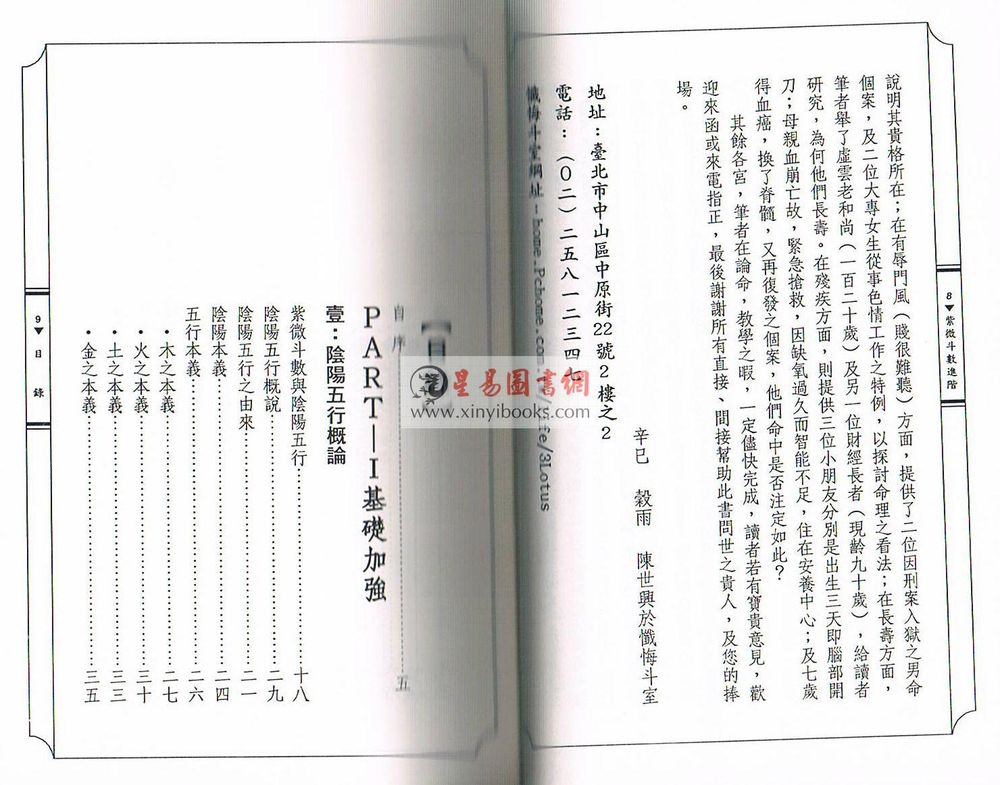 8 紫微斗數進階
說明其貴格所在；在有辱門風（賤很難聽）方面，提供了二位因刑案入獄之男命
個案，及二位大專女生從事色情工作之特例，以探討命理之看法；在長壽方面，
筆者舉了虛雲老和尚（一百二十歲）及另一位財經長者（現齡九十歲），給讀者
研究，為何他們長壽。在殘疾方面，則提供三位小朋友分別是出生三天即腦部開
刀；母親血崩亡故，緊急搶救，因缺氧過久而智能不足，住在安養中心；及七歲
得血癌，換了脊髓，又再復發之個案，他們命中是否注定如此？
其餘各宮，筆者在論命，教學之暇，一定儘快完成，讀者若有寶貴意見，歡
迎來函或來電指正，最後謝謝所有直接、間接幫助此書問世之貴人，及您的捧
場。
辛巳　穀雨　陳世興於懺悔斗室
地址：臺北市中山區中原街22號2樓之2
電話：（０二）二五八一二三四七
懺悔斗室網址－home.Pchome.com /3Lotus
【目
自序……五
PART—I基礎加強
壹：陰陽五行概論
紫微斗數與陰陽五行……十八
陰陽五行概說……二九
陰陽五行之由來……二一
陰陽本義……二四
五行本義……二六
・木之本義……二七
・火之本義……三十
・土之本義……三三
・金之本義……三五
9 目錄
星易圖書網
www.xinyibooks.com